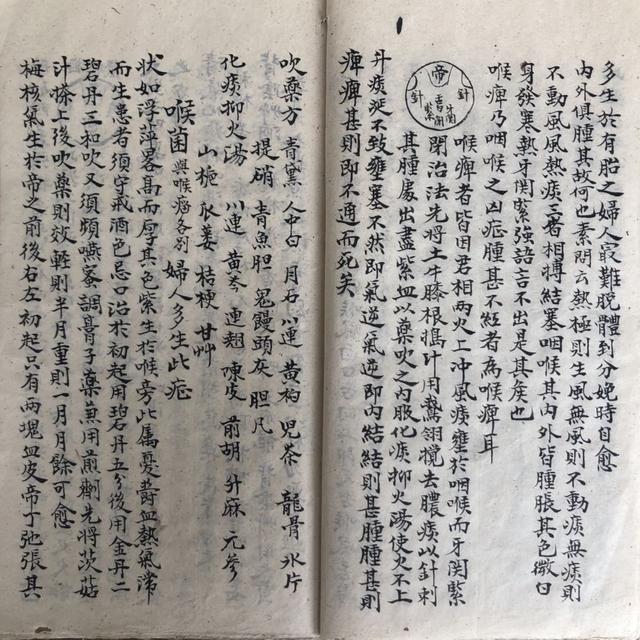 多生於有胎之婦人最難脫體到分娩時自愈
內外俱腫其故何也素問云熱極則生風無風則不動痰無痰則
不動風風熱痰三者相搏結塞咽喉其內外皆腫脹其色微白
身發寒熱牙関緊強語言不出是其候也
喉痺乃咽喉之凶症腫甚不經者為喉痺耳
針 帝 針
喉痺者皆因君相兩火上冲風痰壅於咽喉而牙関緊
閉治法先將土牛膝根搗汁用鵞翎攪去膿痰以針刺
其腫處出盡紫血以藥吹之內服化痰抑火湯使火不上
升痰涎不致壅塞不然即氣逆氣逆即內結結則甚腫腫甚則
痺痺甚則即不通而死矣
吹藥方 青黛 人中白 月石 川連 黃柏 兒茶 龍骨 氷片
提硝 青魚胆 鬼饅頭灰 胆凡
化痰抑火湯 川連 黃芩 連翹 陳皮 前胡 升麻 元參
山梔 姜 桔梗 甘艸
喉菌 與喉癌各別 婦人多生此症
狀如浮萍畧高而厚其色紫生於喉旁此属憂欝血熱氣滞
而生患者須守戒酒色忌口治於初起用碧丹五分後用金丹二
碧丹三和吹又須頻嚥蜜調膏子藥兼用煎劑先將茨菇
汁搽上後吹藥則效輕則半月重則一月月餘可愈
梅核氣生於帝之前後右左初起只有兩塊血皮帝丁弛張其